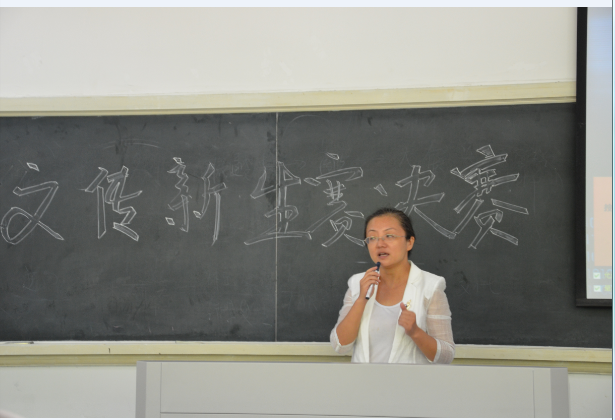 文传新生赛决赛